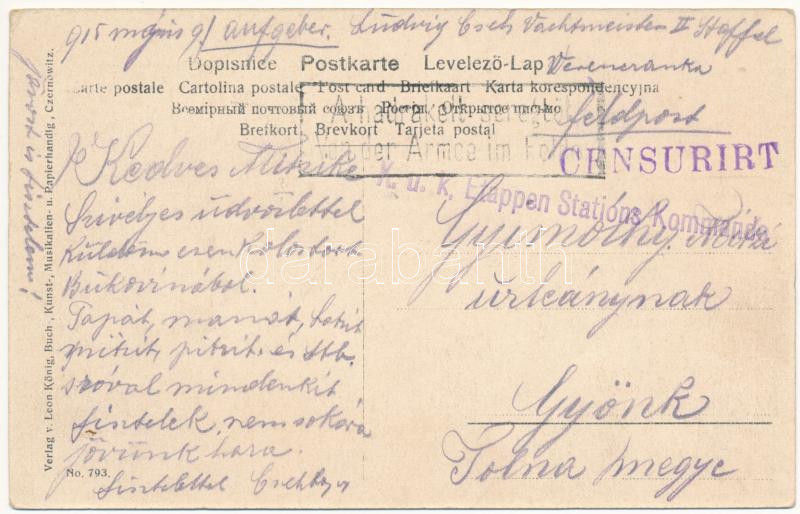 915 május 9/ aufgeber. Ludvig Cseh Vachtmeister II Staffel
Dopisnice Postkarte Levelező-Lap
Carte postale Cartolina postale Post card Briefkaart Karta korespondencyjna
Всемірный почтовый союзъ Россія. Открытое письмо
Brefkort. Brevkort Tarjeta postal
Feldpost
A hadrakelt seregtől
Von der Armee im Felde
CENSURIRT
K. u. k. Etappen Stations Kommando
Kedves Mitzike
Szivélyes üdvözlettel
küldöm ezen kolostort
Bukovinából.
Papát, mamát,
pitzit, és stb.
szóval mindenkit
tisztelek, nemsokára
jövünk haza.
tisztelettel Cseh Lajos
Gyimóthy
urleánynak
Gyönk
Tolna megye
Verlag v. Leon König, Buch-, Kunst-, Musikalien- u. Papierhandlg., Czernowitz.
No. 793.
darabanth